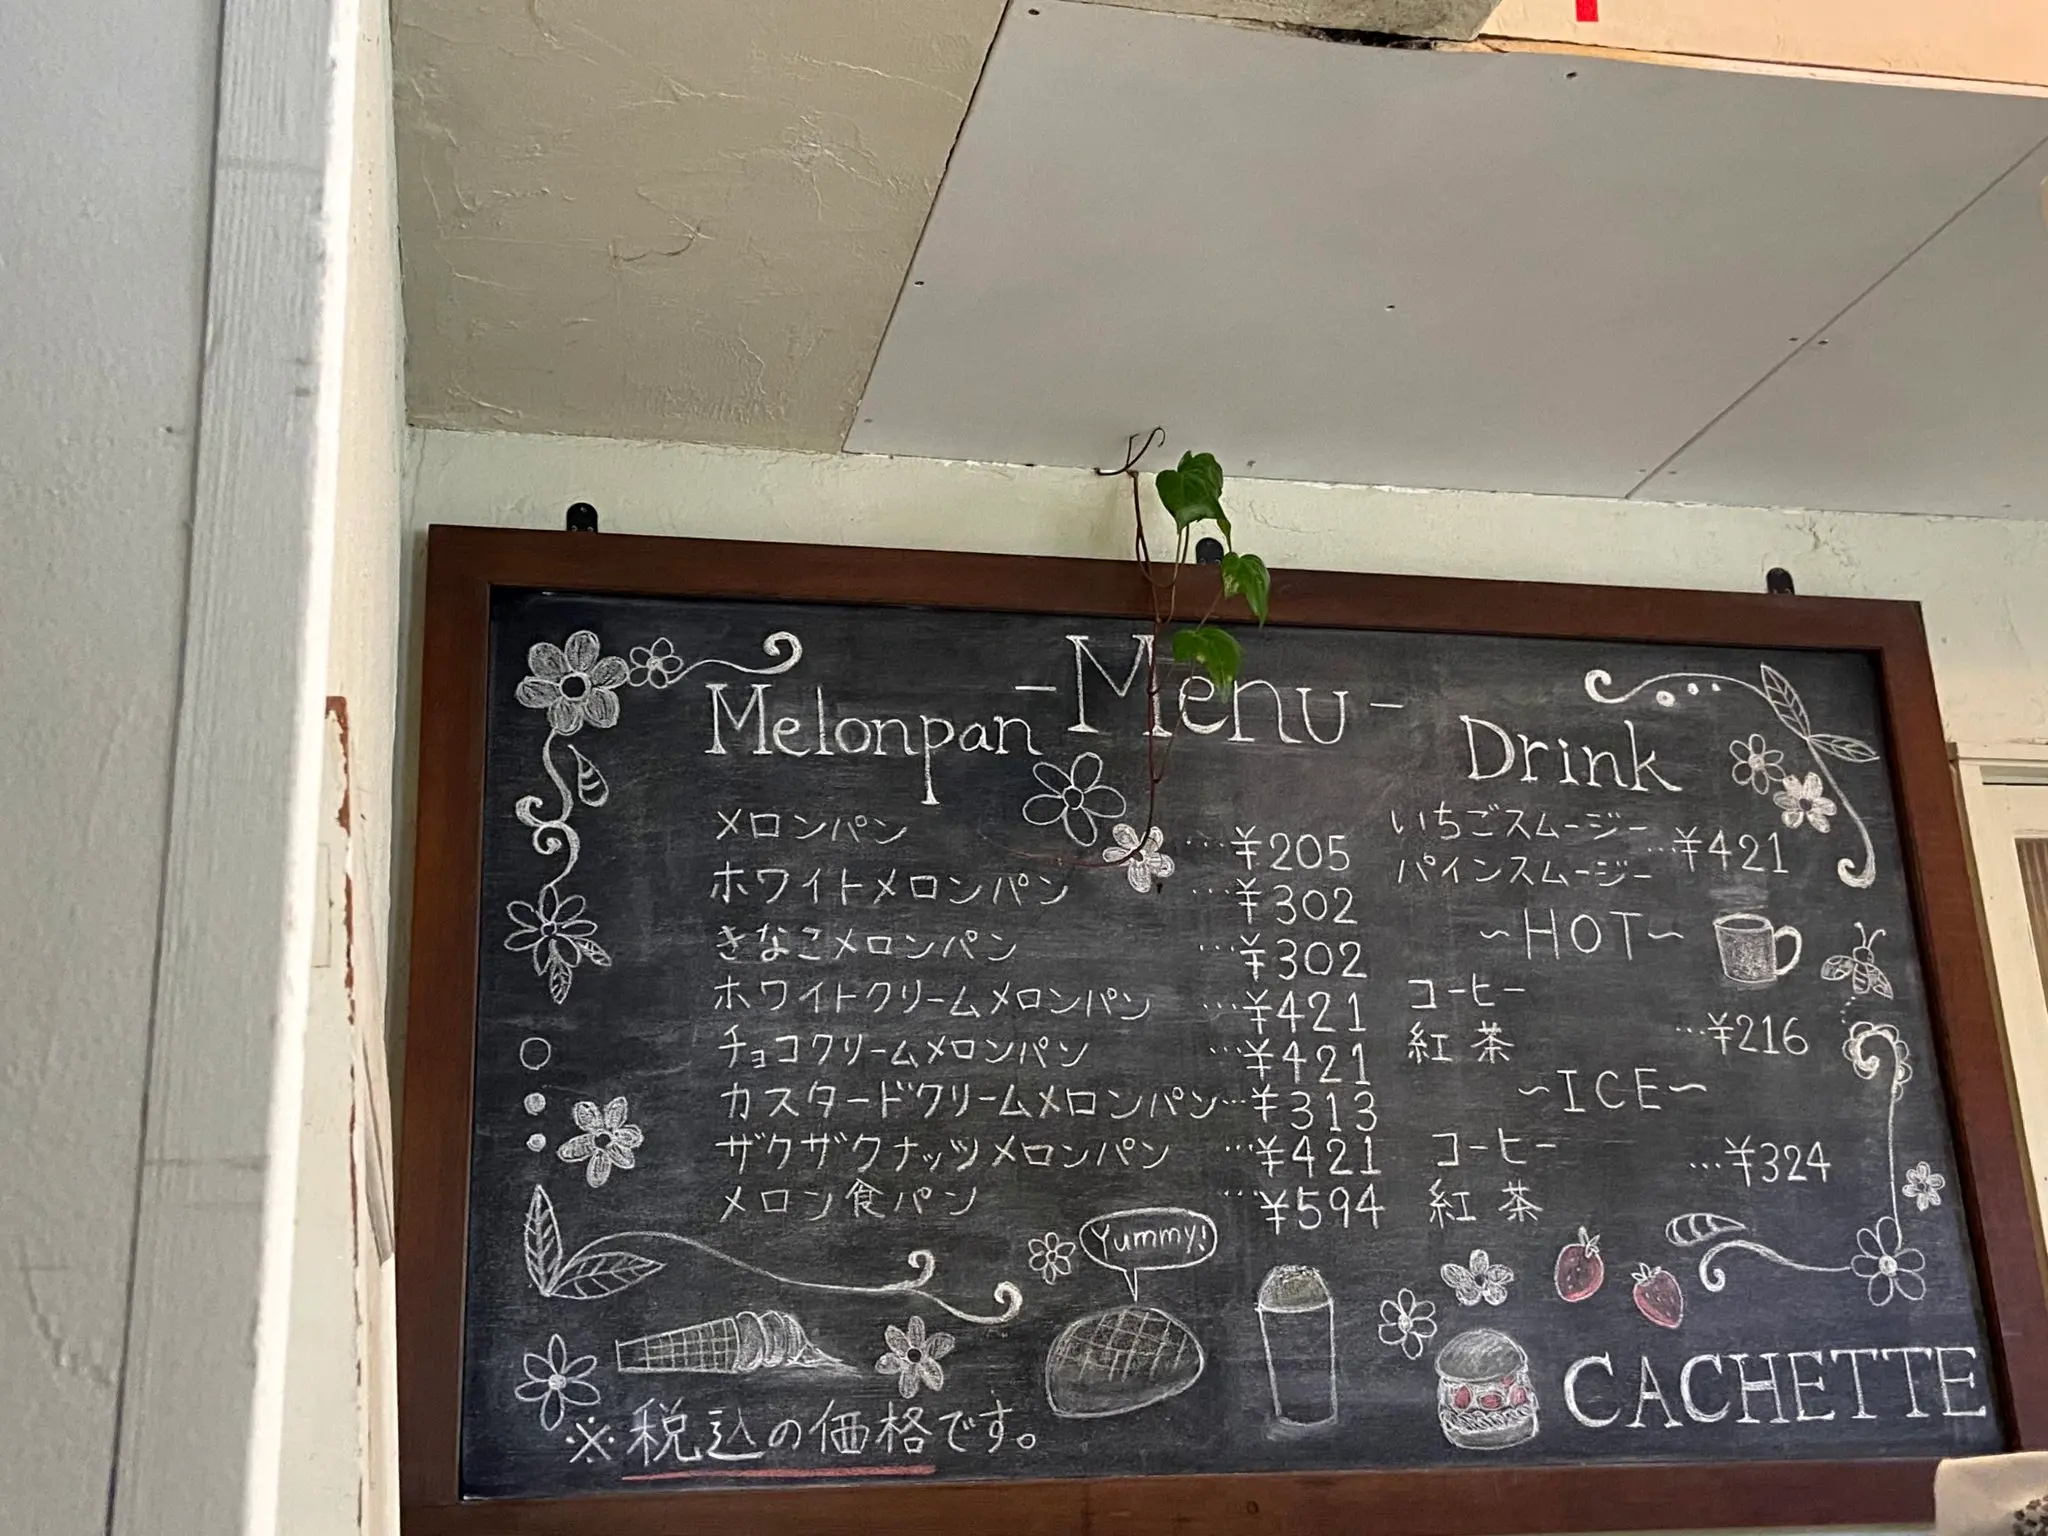 - Menu -
Melonpan
メロンパン …¥205
ホワイトメロンパン …¥302
きなこメロンパン …¥302
ホワイトクリームメロンパン …¥421
チョコクリームメロンパン …¥421
カスタードクリームメロンパン …¥313
ザクザクナッツメロンパン …¥421
メロン食パン …¥594
Drink
いちごスムージー
パインスムージー …¥421
~HOT~
コーヒー
紅茶 …¥216
~ICE~
コーヒー …¥324
紅茶
Yummy!
CACHETTE
※税込の価格です。